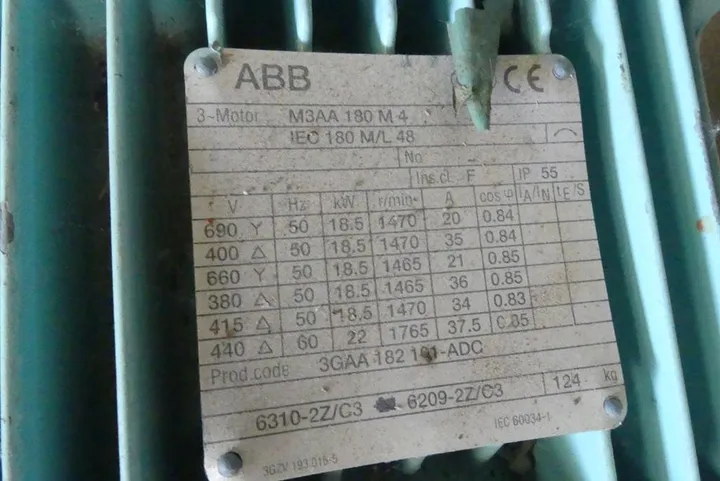 ABB CE
3~Motor M3AA 180 M 4
IEC 180 M/L 48
No
Ins.cl. F IP 55
V Hz kW r/min A cos φ IA/IN tE/S
690 Y 50 18.5 1470 20 0.84
400 Δ 50 18.5 1470 35 0.84
660 Y 50 18.5 1465 21 0.85
380 Δ 50 18.5 1465 36 0.85
415 Δ 50 18.5 1470 34 0.83
440 Δ 60 22 1765 37.5 0.85
Prod.code 3GAA 182 101-ADC
6310-2Z/C3 6209-2Z/C3 124 kg
3GZV 193 015-5 IEC 60034-1